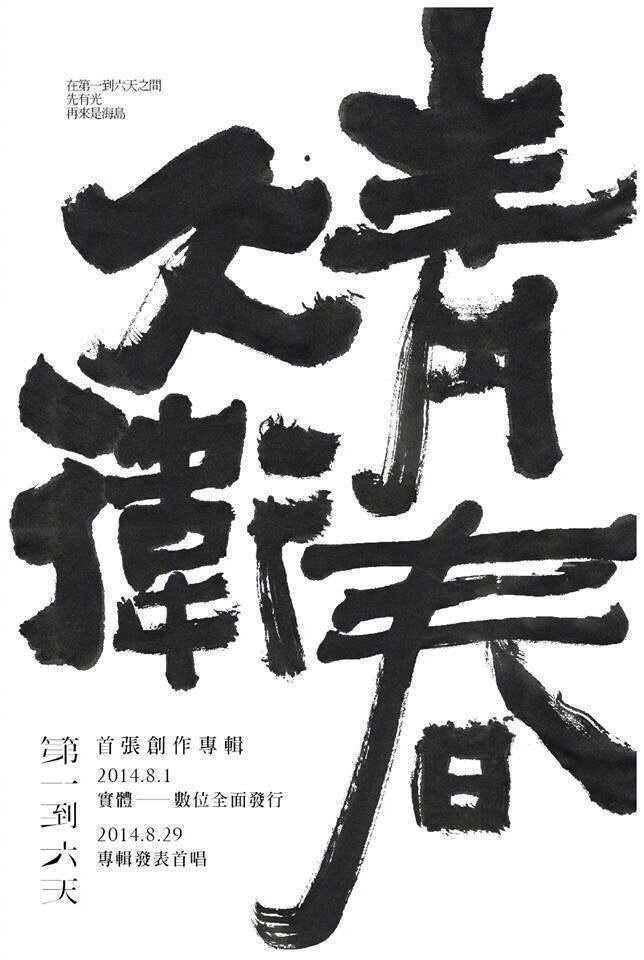 青春
大衛
在第一到六天之間
先有光
再來是海島
第一到六天
首張創作專輯
2014.8.1
實體——數位全面發行
2014.8.29
專輯發表首唱